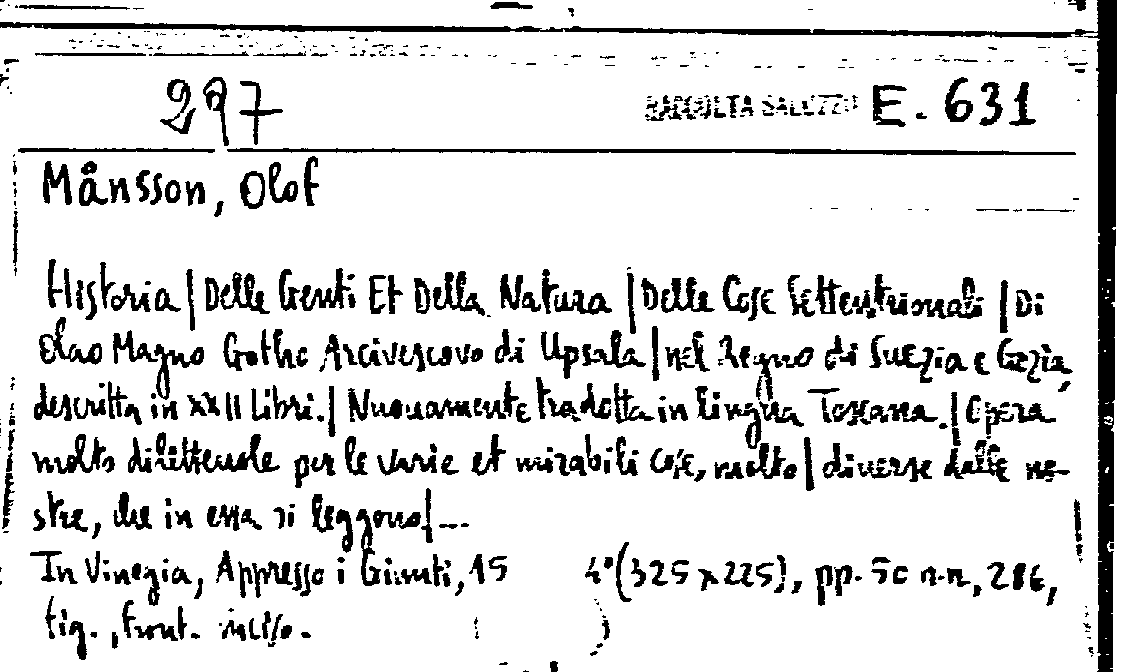 297 RACCOLTA SALUZZO E. 631
Månsson, Olof
Historia | Delle Genti Et Della Natura | Delle Cose Settentrionali | Di
Olao Magno Gotho Arcivescovo di Upsala | nel Regno di Suezia e Gozia,
descritta in XXII Libri. | Nuouamente tradotta in Lingua Toscana. | Opera
molto diletteuole per le varie et mirabili cose, molto | diuerse dalle no-
stre, che in essa si leggono | ---
In Vinegia, Appresso i Giunti, 15 4° (325 x 225), pp. 50 n.n, 286,
fig., front. inciso.